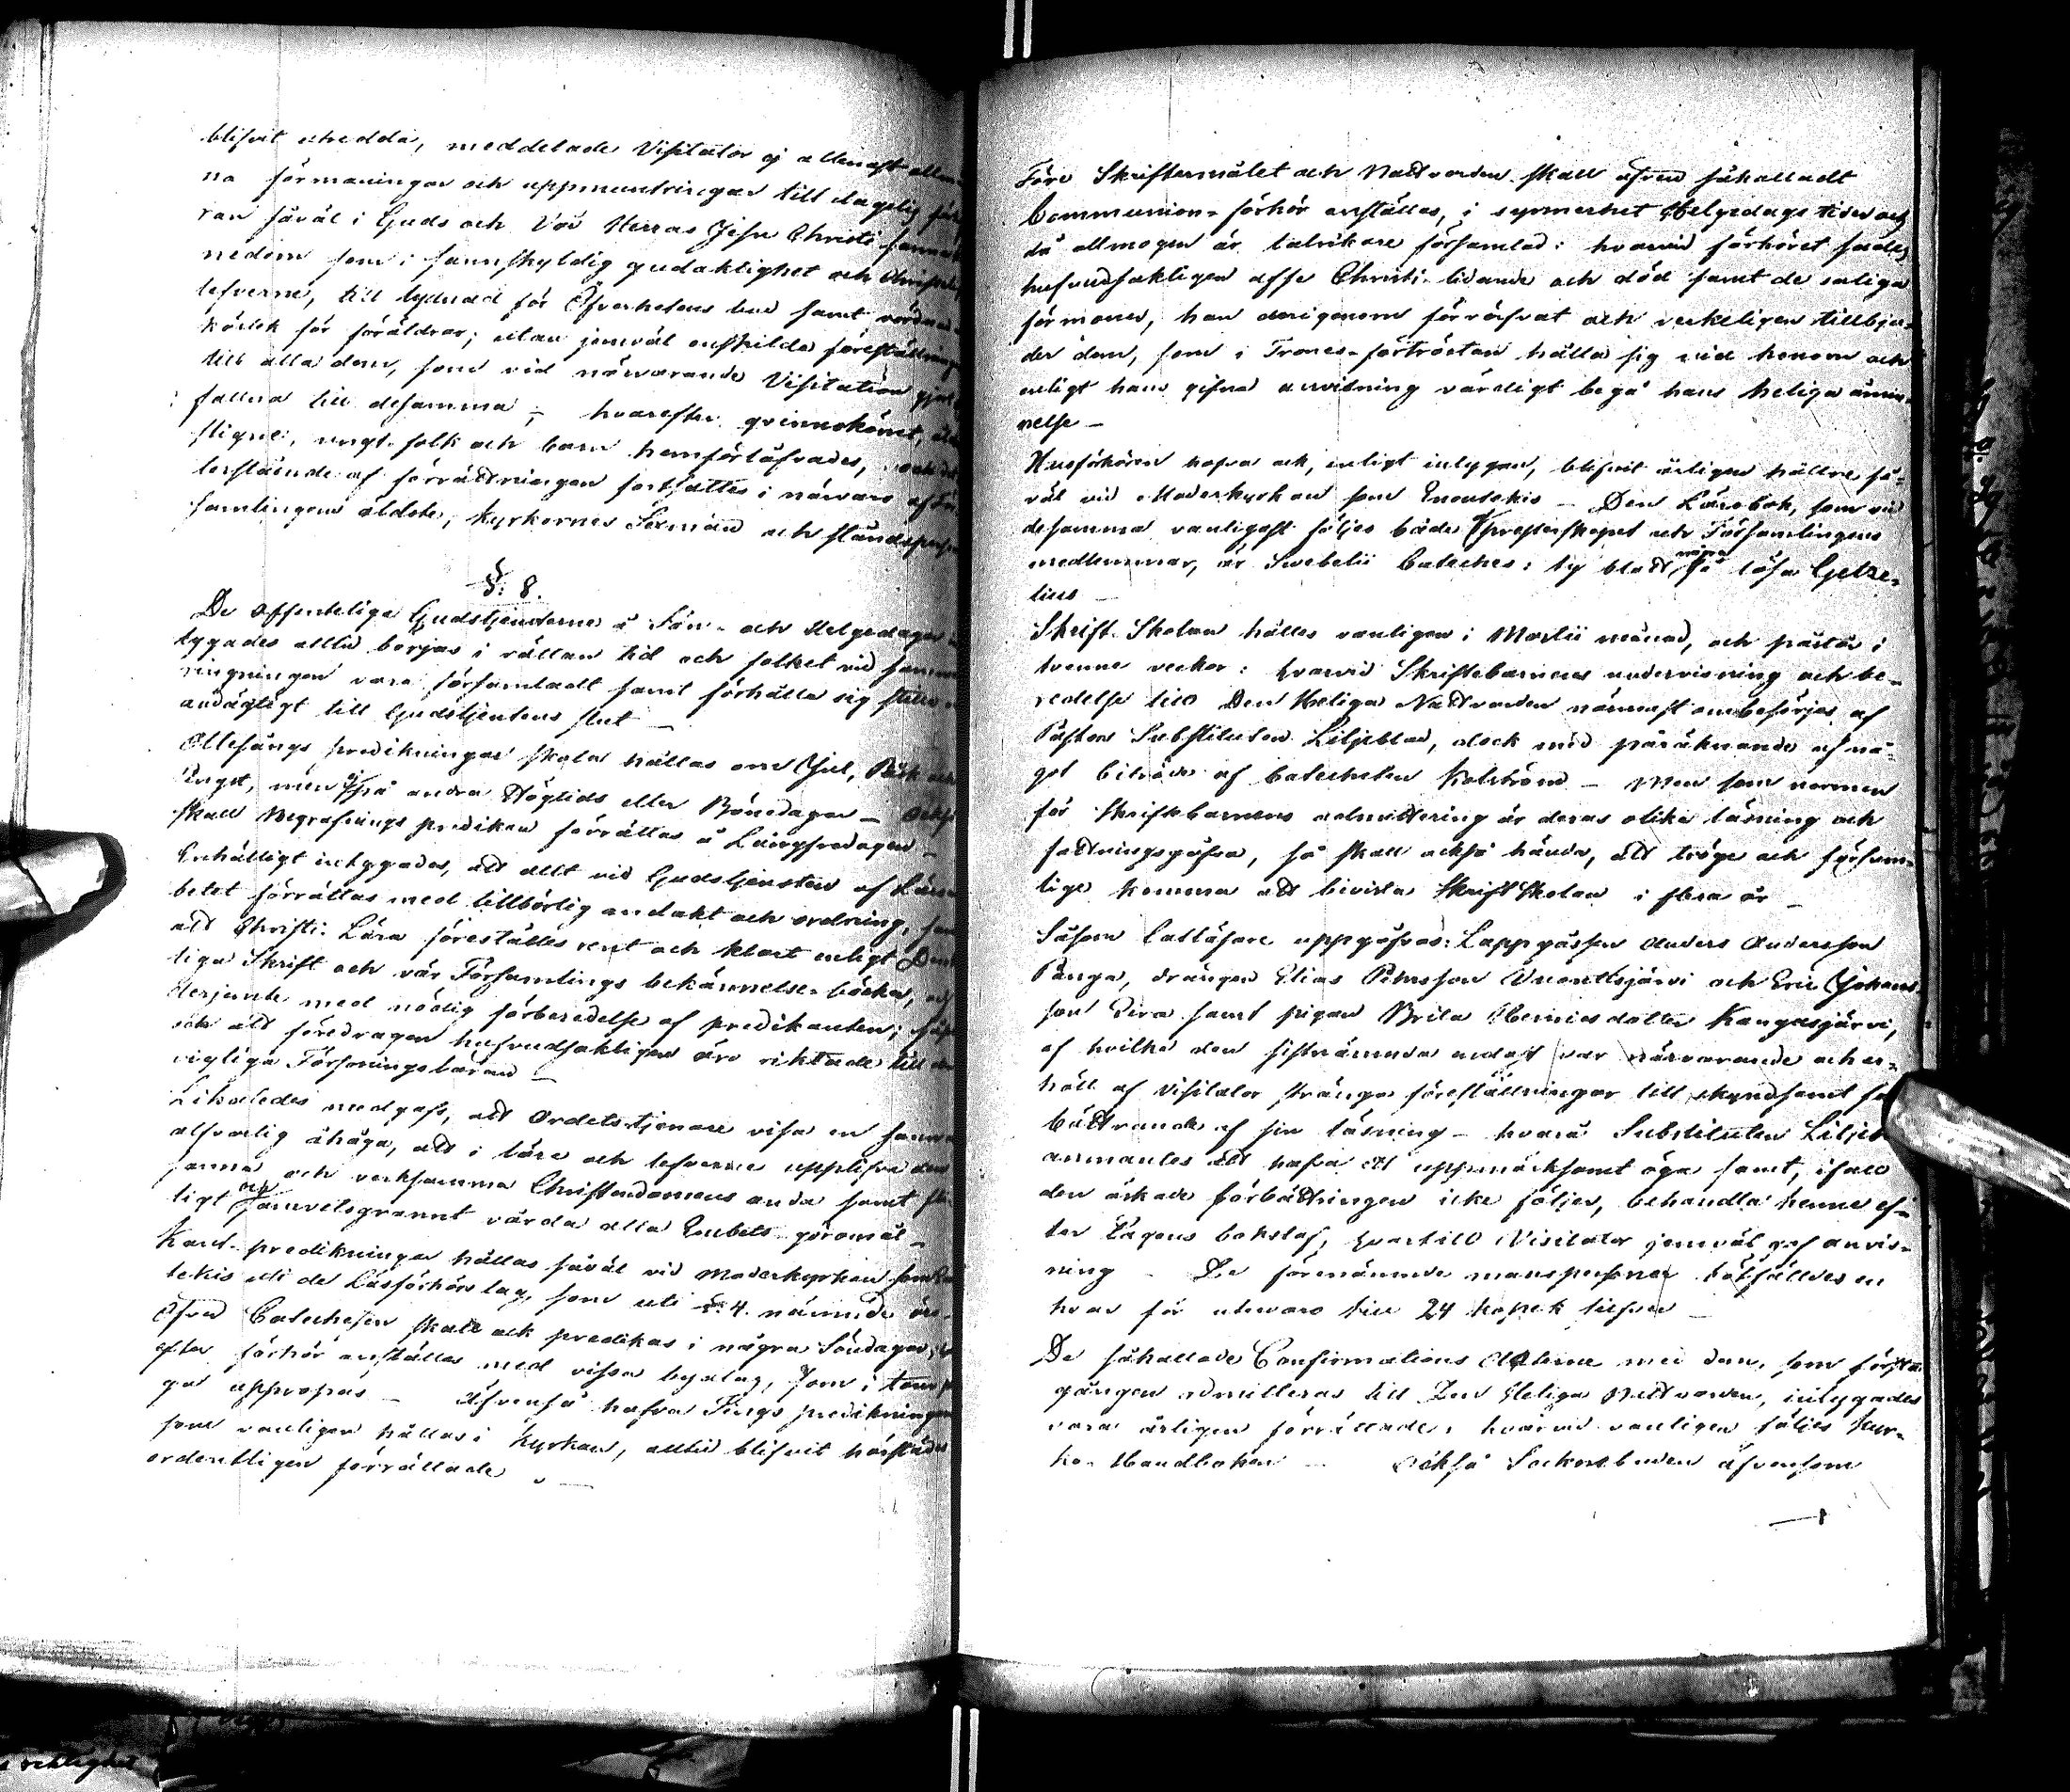 blifvit utredda, meddelade Visitator ej allenast allmän
na förmaningar och uppmuntringar till dagelig för
ran såväl i Guds och Vår Herras Jesu Christi sanna
nedom som i sannskyldig gudaktighet och Christeligt
lefverne, till lydnad för Öfverhetens bud samt vördnad
kärlek för föräldrar; utan jemväl enskilda föreställningar
till alla dem, som vid närvarande Visitation
fallna till desamma; hvarefter qvinnokönet,
stigne, ungt folk och barn hemförlåfvades, och det
terstående af förrättningen fortsattes i närvaro af För
samlingens äldste, kyrkornes Sexmän och ståndspersoner
§: 8.
De offentelige Gudstjensterne å Sön- och Helgedagar
tygades alltid börjas i rättan tid och folket vid samman
ringningen vara församladt samt förhålla sig stilla
andägtigt till Gudstjenstens slut —
Ottesångs predikningar skola hållas om Jul, Påsk och
Pingst, men ej på andra Högtids eller Bönedagar — Också
skall Begrafnings predikan förrättas å Långfredagen —
Enhälligt intygades, att allt vid Gudstjensten af Lärare
betet förrättas med tillbörlig andakt och ordning, samt
att Christi Lära föreställes rent och klart enligt Den
liga Skrift och vår Församlings bekännelse-böcker,
Herjemte med nödig förberedelse af predikanten;
och att föredragen hufvudsakligen äro riktade till
vigliga Försoningsläran —
Likaledes medgafs, att Ordets tjenare visa en sann
alfvarlig åhåga, att i lära och lefverne upplifva den
sanna och verksamma Christendomens anda samt
ligt och samvetsgrannt vårda alla Embets-göromål —
Kant-predikningar hållas såväl vid Moderkyrkan som
tekis uti de Läsförhörslag, som uti §: 4. nämnde äro.
Öfver Catechesen skall ock predikas i några Söndagar,
efter förhör anställas med vissa byalag, som i
ga uppropas — Äfvenså hafva Tings predikningar
som vanligen hållas i Kyrkan, alltid blifvit härstädes
ordentligen förrättade —
Före Skriftermålet och Nattvarden skall äfven såkalladt
Communion-förhör anställas, i synnerhet Helgedags tider och
då allmogen är talrikare församlad: hvarvid förhöret sades
hufvudsakligen afse Christi lidande och död samt de saliga
förmoner, han derigenom förvärfvat och verkeligen tillbju-
der dem, som i Trones-förtröstan hålla sig vid honom och
enligt hans gifna anvisning värdigt begå hans heliga åmin-
nelse —
Husförhören hafva ock, enligt intygan, blifvit årligen hållne så-
väl vid Moderkyrkan som Enontekis — Den Lärobok, som vid
desamma vanligast följes både af presterskapet och Församlingens
medlemmar, är Swebelii Catechес: ty blott några få läsa Getze-
lius —
Skrift-Skolan hålles vanligen i Martii månad, och påstår i
tvenne veckor: hvarvid Skriftebarnens undervisning och be-
redelse till Den Heliga Nattvarden närmast ombesörjes af
Pastors Substituten Liljeblad, dock med påräknande af nå-
got biträde af Catecheten Kolström — Men som normen
för Skriftebarnens admittering är deras olika läsning och
fattningsgåfva, så skall också hända, att tröge och försum-
lige komma att bivista Skrift Skolan i flera år —
Såsom lattläsare uppgåfvos: Lappgossen Anders Andersson
Panga, drängen Elias Pehrsson Vuontisjärvi och Eric Johans-
son Pera samt pigan Brita Henriesdotter Kangasjärvi,
af hvilka den sistnämnda endast var närvarande och er-
höll af Visitator stränga föreställningar till skyndsamt för
bättrande af sin läsning — hvarå Substituten Liljeb
anmantes att hafva ett uppmärksamt öga samt, ifall
den äskade förbättringen icke följer, behandla henne ef-
ter Lagens bokstaf, hvartill Visitator jemväl gaf anvis-
ning — De förenämnde manspersoner botfälldes en
hvar för utevaro till 24 kopek silfver —
De såkallade Confirmations Acterne med dem, som första
gången admitteras till Den Heliga Nattvarden, intygades
vara årligen förrättade: hvarvid vanligen följes Kyr-
ko-Handboken — Också Sockenbuden äfvensom